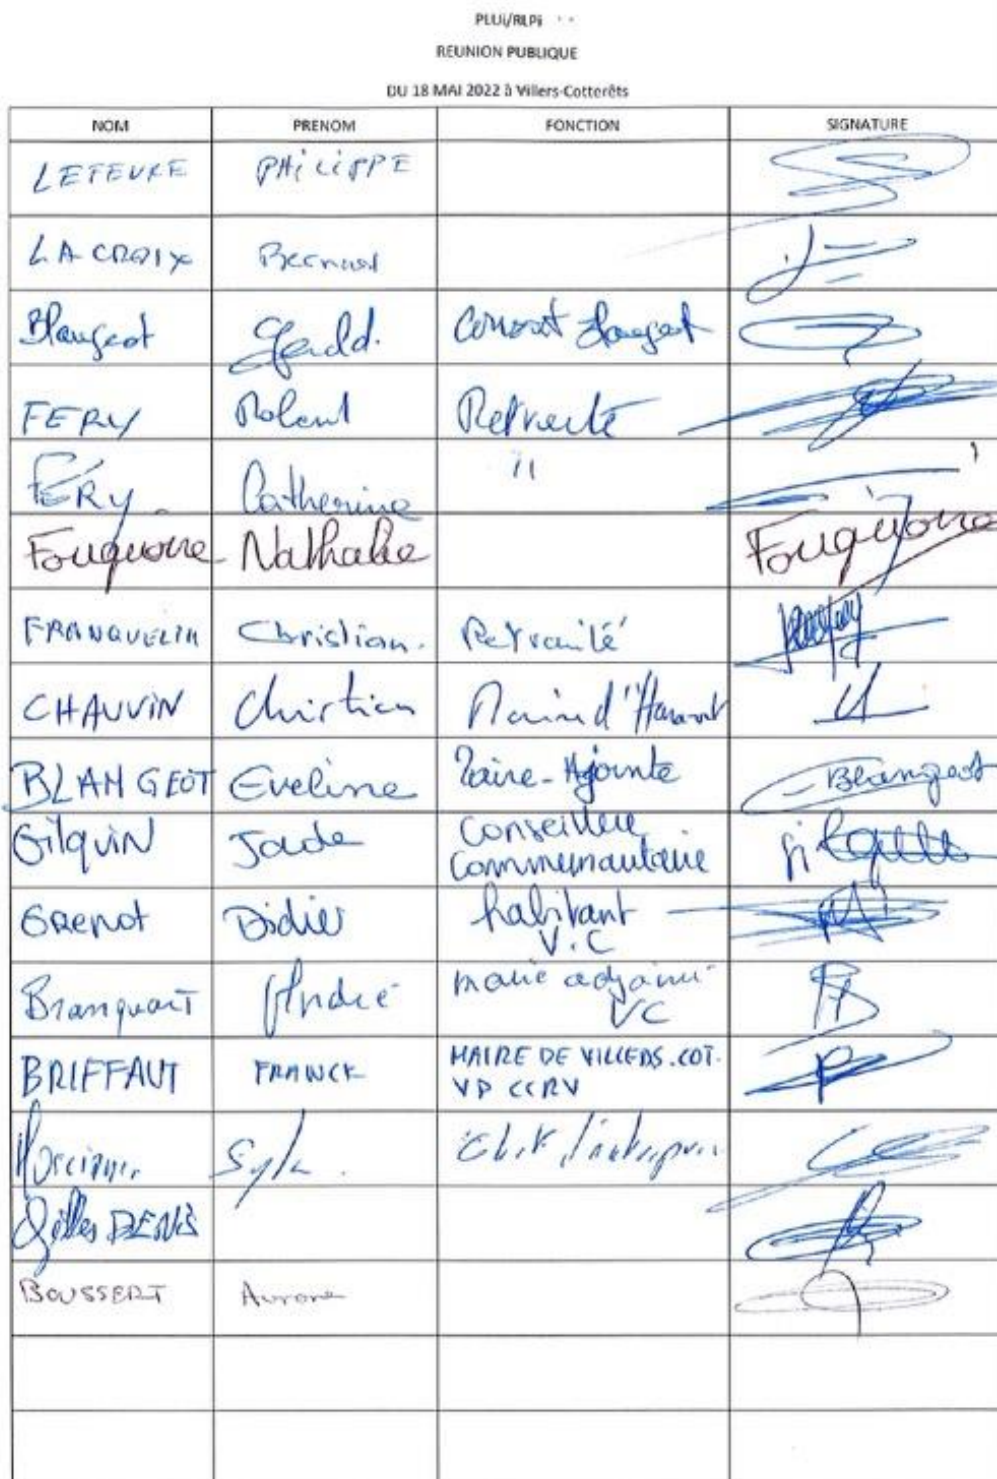 PLUi/RLPi
REUNION PUBLIQUE
DU 18 MAI 2022 à Villers-Cotterêts
NOM PRENOM FONCTION SIGNATURE
LEFEVRE PHILIPPE
LACROIX Bernard
Blangeot Gérald.
FERY Roland Retraité
FÉRY Catherine "
Fouquoire Nathalie Fouquoire
FRANQUELIN Christian. Retraité
CHAUVIN Christian
BLANGEOT Eveline Maire-Ajointe Blangeot
Gilquin Jade Conseillère
Communautaire
Grenot Didier habitant
V.C
Branquart André maire adjoint
VC
BRIFFAUT FRANCK MAIRE DE VILLERS.COT.
VP CCRV
Chef d'entreprise
Gilles DENIS
BOUSSERT Aurore